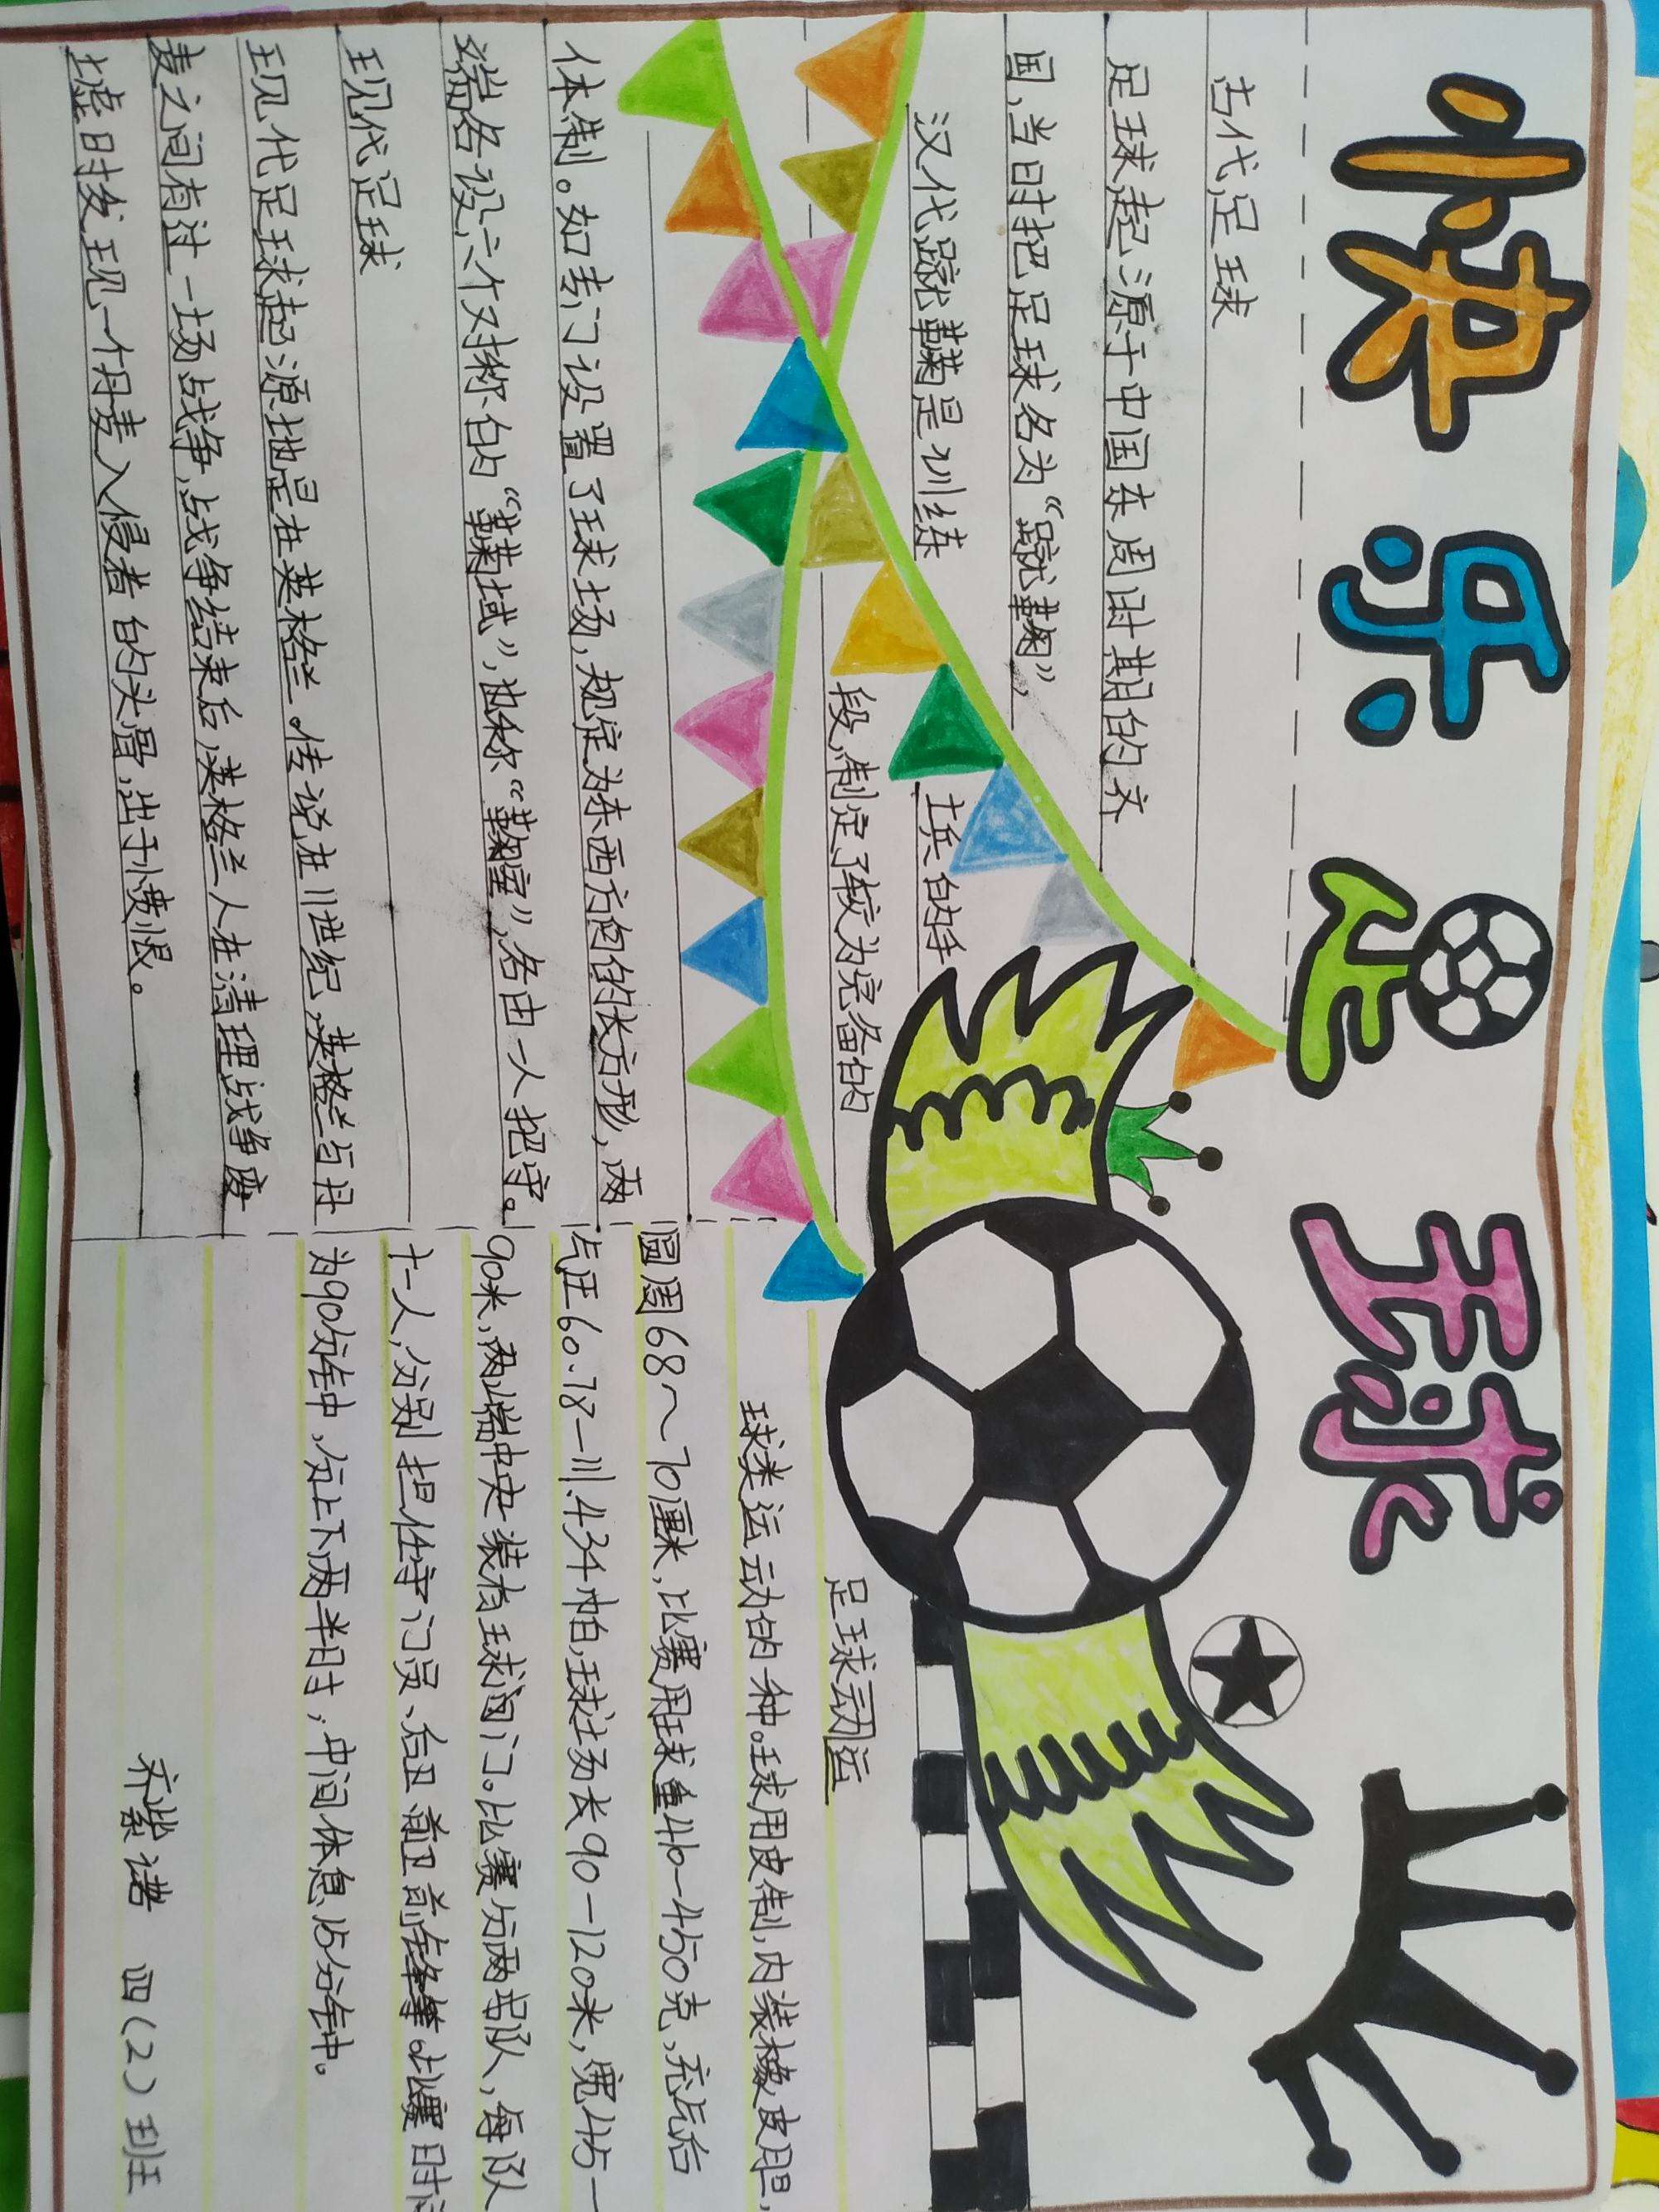 快乐足球
古代足球
足球,起源于中国东周时期的齐
国,当时把足球名为“蹴鞠”,
汉代蹴鞠是训练
士兵的手
段,制定了较为完备的
体制。如专门设置了球场,规定为东西方向的长方形,两
端各设六个对称的“鞠域”,也称“鞠室”,各由一人把守。
现代足球
现代足球起源地是在英格兰。传说在11世纪,英格兰与丹
麦之间有过一场战争,战争结束后,英格兰人在清理战争废
墟时发现一个丹麦入侵者的头骨,出于愤恨。
足球云动运
球类运动的一种。球用皮制,内装橡皮胆,
圆周68~70厘米,比赛用球重410-450克,充气后
气压60.78-111.43千帕,球场长90-120米,宽45-
90米,两端中央装有球门。比赛分两队,每队
十一人,分别担任守门员、后卫 前卫 前锋等。比赛时间
为90分钟,分上下两半时,中间休息15分钟。
乔紫诺 四(2)班